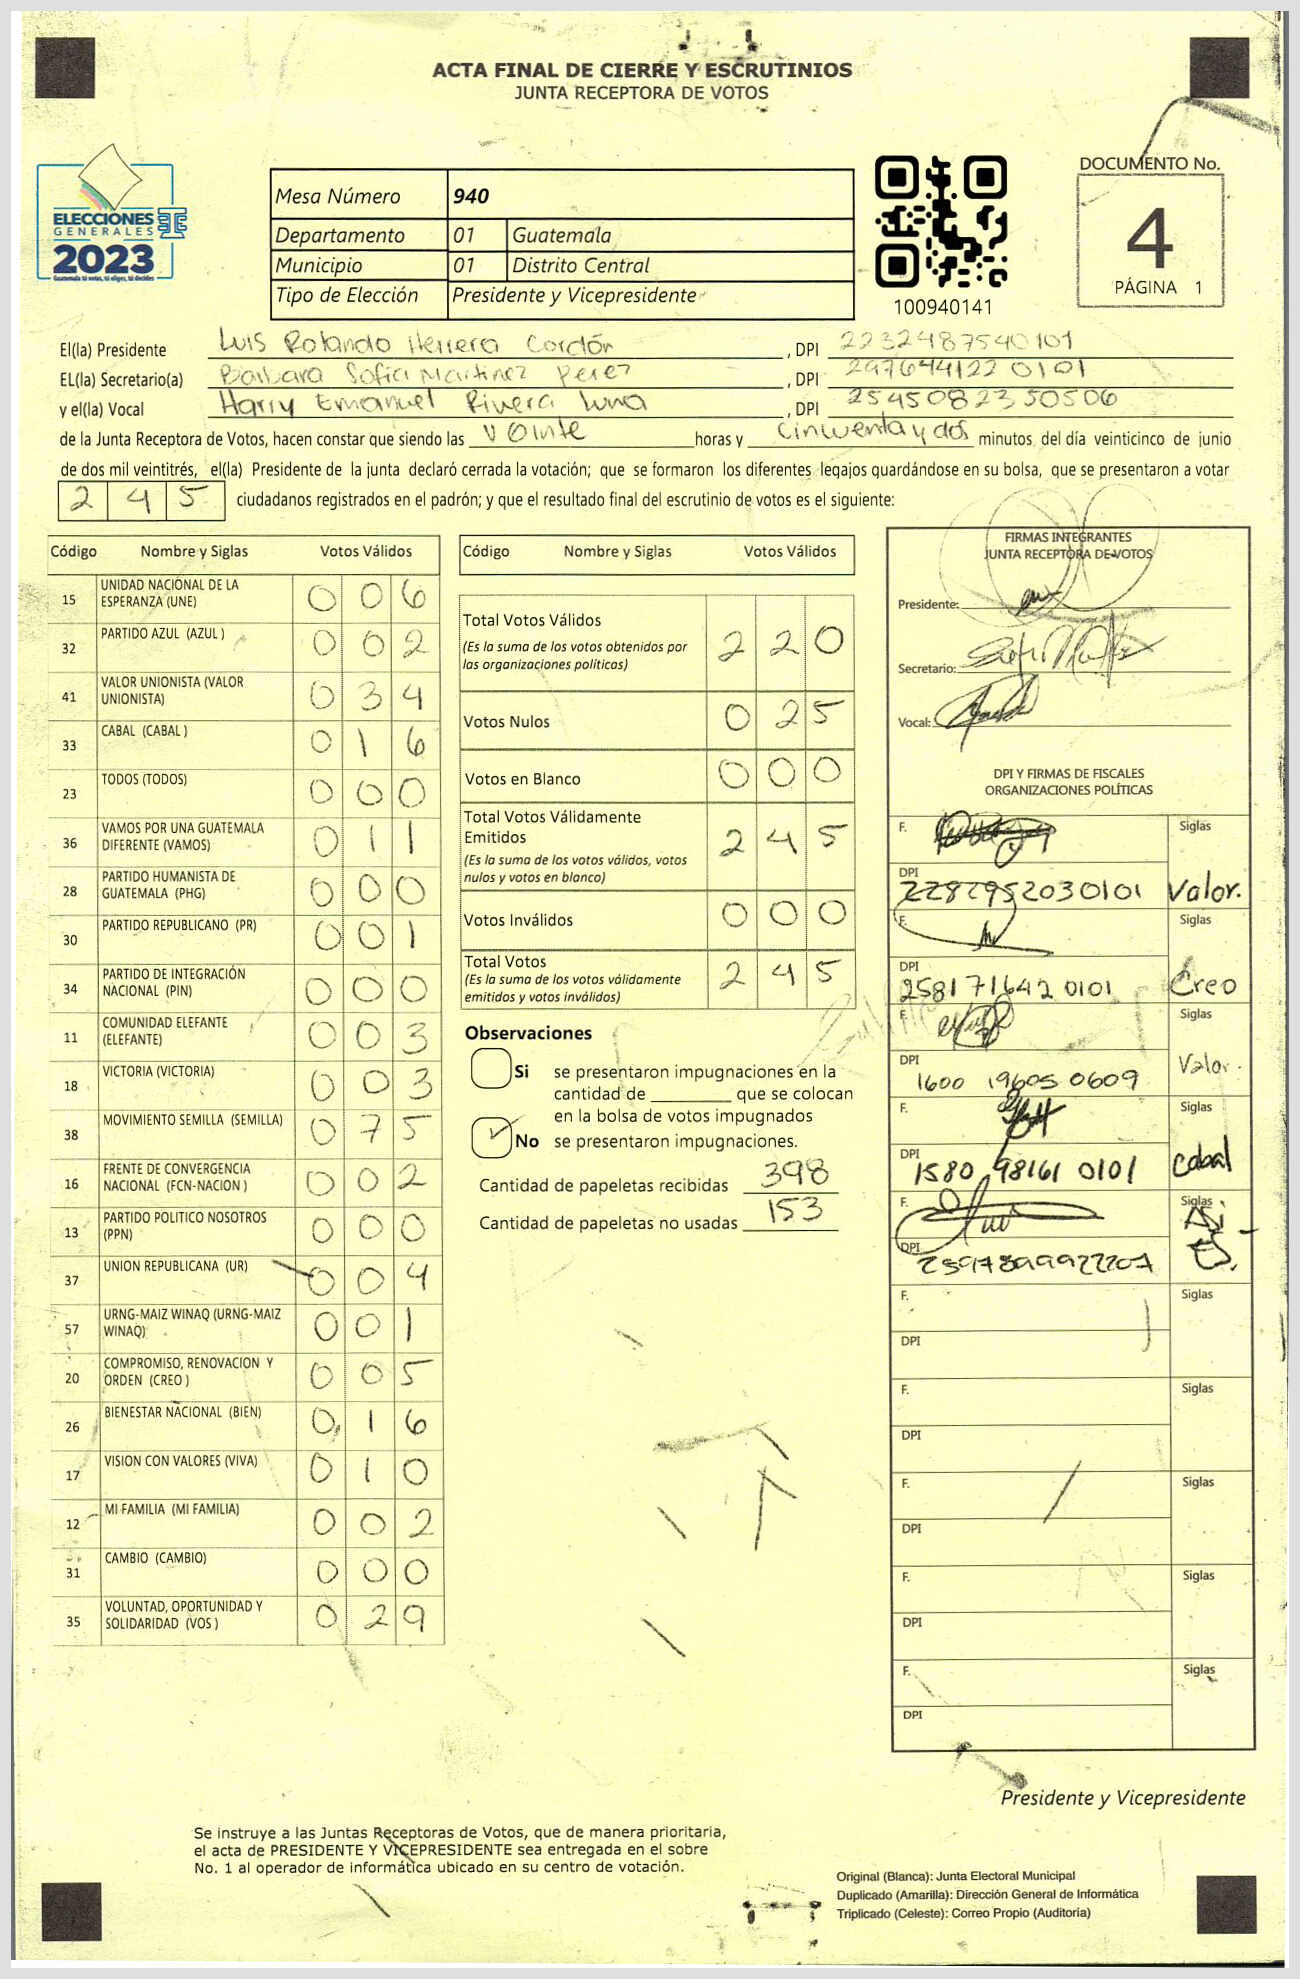 ACTA FINAL DE CIERRE Y ESCRUTINIOS
JUNTA RECEPTORA DE VOTOS
ELECCIONES
GENERALES
2023
Guatemala tú votas, tú eliges, tú decides
Mesa Número 940
Departamento 01 Guatemala
Municipio 01 Distrito Central
Tipo de Elección Presidente y Vicepresidente
100940141
DOCUMENTO No.
4
PÁGINA 1
El(la) Presidente Luis Rolando Herrera Cordón, DPI 2232487540101
EL(la) Secretario(a) Barbara Sofia Martinez Perez, DPI 2976441220101
y el(la) Vocal Harry Emanuel Rivera Luna, DPI 2545082350506
de la Junta Receptora de Votos, hacen constar que siendo las veinte horas y cincuenta y dos minutos del día veinticinco de junio
de dos mil veintitrés, el(la) Presidente de la junta declaró cerrada la votación; que se formaron los diferentes legajos quardándose en su bolsa, que se presentaron a votar
245 ciudadanos registrados en el padrón; y que el resultado final del escrutinio de votos es el siguiente:
Código Nombre y Siglas Votos Válidos
15 UNIDAD NACIONAL DE LA ESPERANZA (UNE) 006
32 PARTIDO AZUL (AZUL ) 002
41 VALOR UNIONISTA (VALOR UNIONISTA) 034
33 CABAL (CABAL ) 016
23 TODOS (TODOS) 000
36 VAMOS POR UNA GUATEMALA DIFERENTE (VAMOS) 011
28 PARTIDO HUMANISTA DE GUATEMALA (PHG) 000
30 PARTIDO REPUBLICANO (PR) 001
34 PARTIDO DE INTEGRACIÓN NACIONAL (PIN) 000
11 COMUNIDAD ELEFANTE (ELEFANTE) 003
18 VICTORIA (VICTORIA) 003
38 MOVIMIENTO SEMILLA (SEMILLA) 075
16 FRENTE DE CONVERGENCIA NACIONAL (FCN-NACION ) 002
13 PARTIDO POLITICO NOSOTROS (PPN) 000
37 UNION REPUBLICANA (UR) 004
57 URNG-MAIZ WINAQ (URNG-MAIZ WINAQ) 001
20 COMPROMISO, RENOVACION Y ORDEN (CREO ) 005
26 BIENESTAR NACIONAL (BIEN) 016
17 VISION CON VALORES (VIVA) 010
12 MI FAMILIA (MI FAMILIA) 002
31 CAMBIO (CAMBIO) 000
35 VOLUNTAD, OPORTUNIDAD Y SOLIDARIDAD (VOS ) 029
Código Nombre y Siglas Votos Válidos
Total Votos Válidos 220
(Es la suma de los votos obtenidos por
las organizaciones políticas)
Votos Nulos 025
Votos en Blanco 000
Total Votos Válidamente
Emitidos 245
(Es la suma de los votos válidos, votos
nulos y votos en blanco)
Votos Inválidos 000
Total Votos 245
(Es la suma de los votos válidamente
emitidos y votos inválidos)
Observaciones
Si se presentaron impugnaciones en la
cantidad de ________ que se colocan
en la bolsa de votos impugnados
✓ No se presentaron impugnaciones.
Cantidad de papeletas recibidas 398
Cantidad de papeletas no usadas 153
FIRMAS INTEGRANTES
JUNTA RECEPTORA DE VOTOS
Presidente:
Secretario:
Vocal:
DPI Y FIRMAS DE FISCALES
ORGANIZACIONES POLÍTICAS
F. Siglas
DPI 2282952030101 Valor.
F. Siglas
DPI 2581716420101 Creo
F. Siglas
DPI 1600 19605 0609 Valor.
F. Siglas
DPI 1580 98161 0101 Cabal
F. Siglas Asi Es.
DPI
F. Siglas
DPI
F. Siglas
DPI
F. Siglas
DPI
F. Siglas
DPI
F. Siglas
DPI
Presidente y Vicepresidente
Se instruye a las Juntas Receptoras de Votos, que de manera prioritaria,
el acta de PRESIDENTE Y VICEPRESIDENTE sea entregada en el sobre
No. 1 al operador de informática ubicado en su centro de votación.
Original (Blanca): Junta Electoral Municipal
Duplicado (Amarilla): Dirección General de Informática
Triplicado (Celeste): Correo Propio (Auditoria)